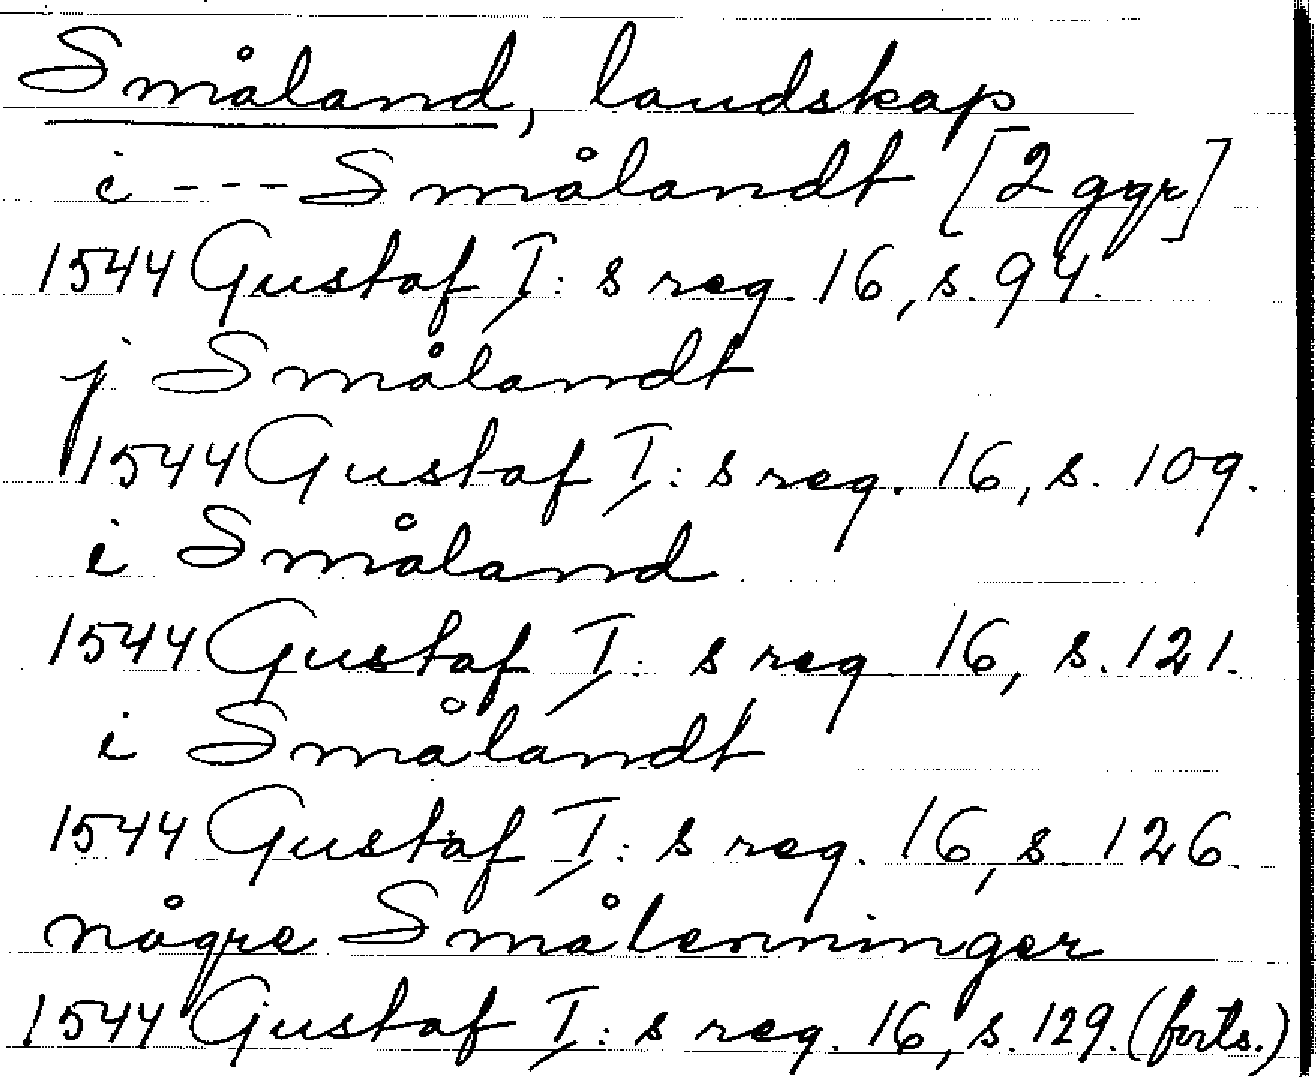 Småland, landskap
i --- Smålandt [2 ggr]
1544 Gustaf I: s reg. 16, s. 94.
j Smålandt
1544 Gustaf I: s reg. 16, s. 109.
i Småland
1544 Gustaf I: s reg 16, s. 121.
i Smålandt
1544 Gustaf I: s reg. 16, s. 126.
någre Smålenninger
1544 Gustaf I: s reg. 16, s. 129. (forts.)